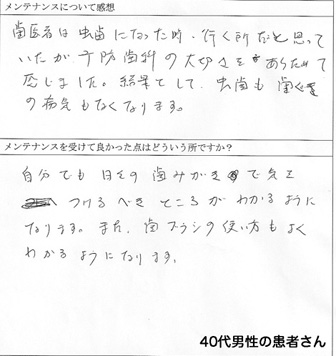 メンテナンスについて感想
歯医者は虫歯になった時、行く所だと思って
いたが予防歯科の大切さをあらためて
感じました。結果として、虫歯も歯ぐき
の病気もなくなります。
メンテナンスを受けて良かった点はどういう所ですか？
自分でも日々の歯みがきで気を
つけるべきところがわかるように
なります。また、歯ブラシの使い方もよく
わかるようになります。
40代男性の患者さん